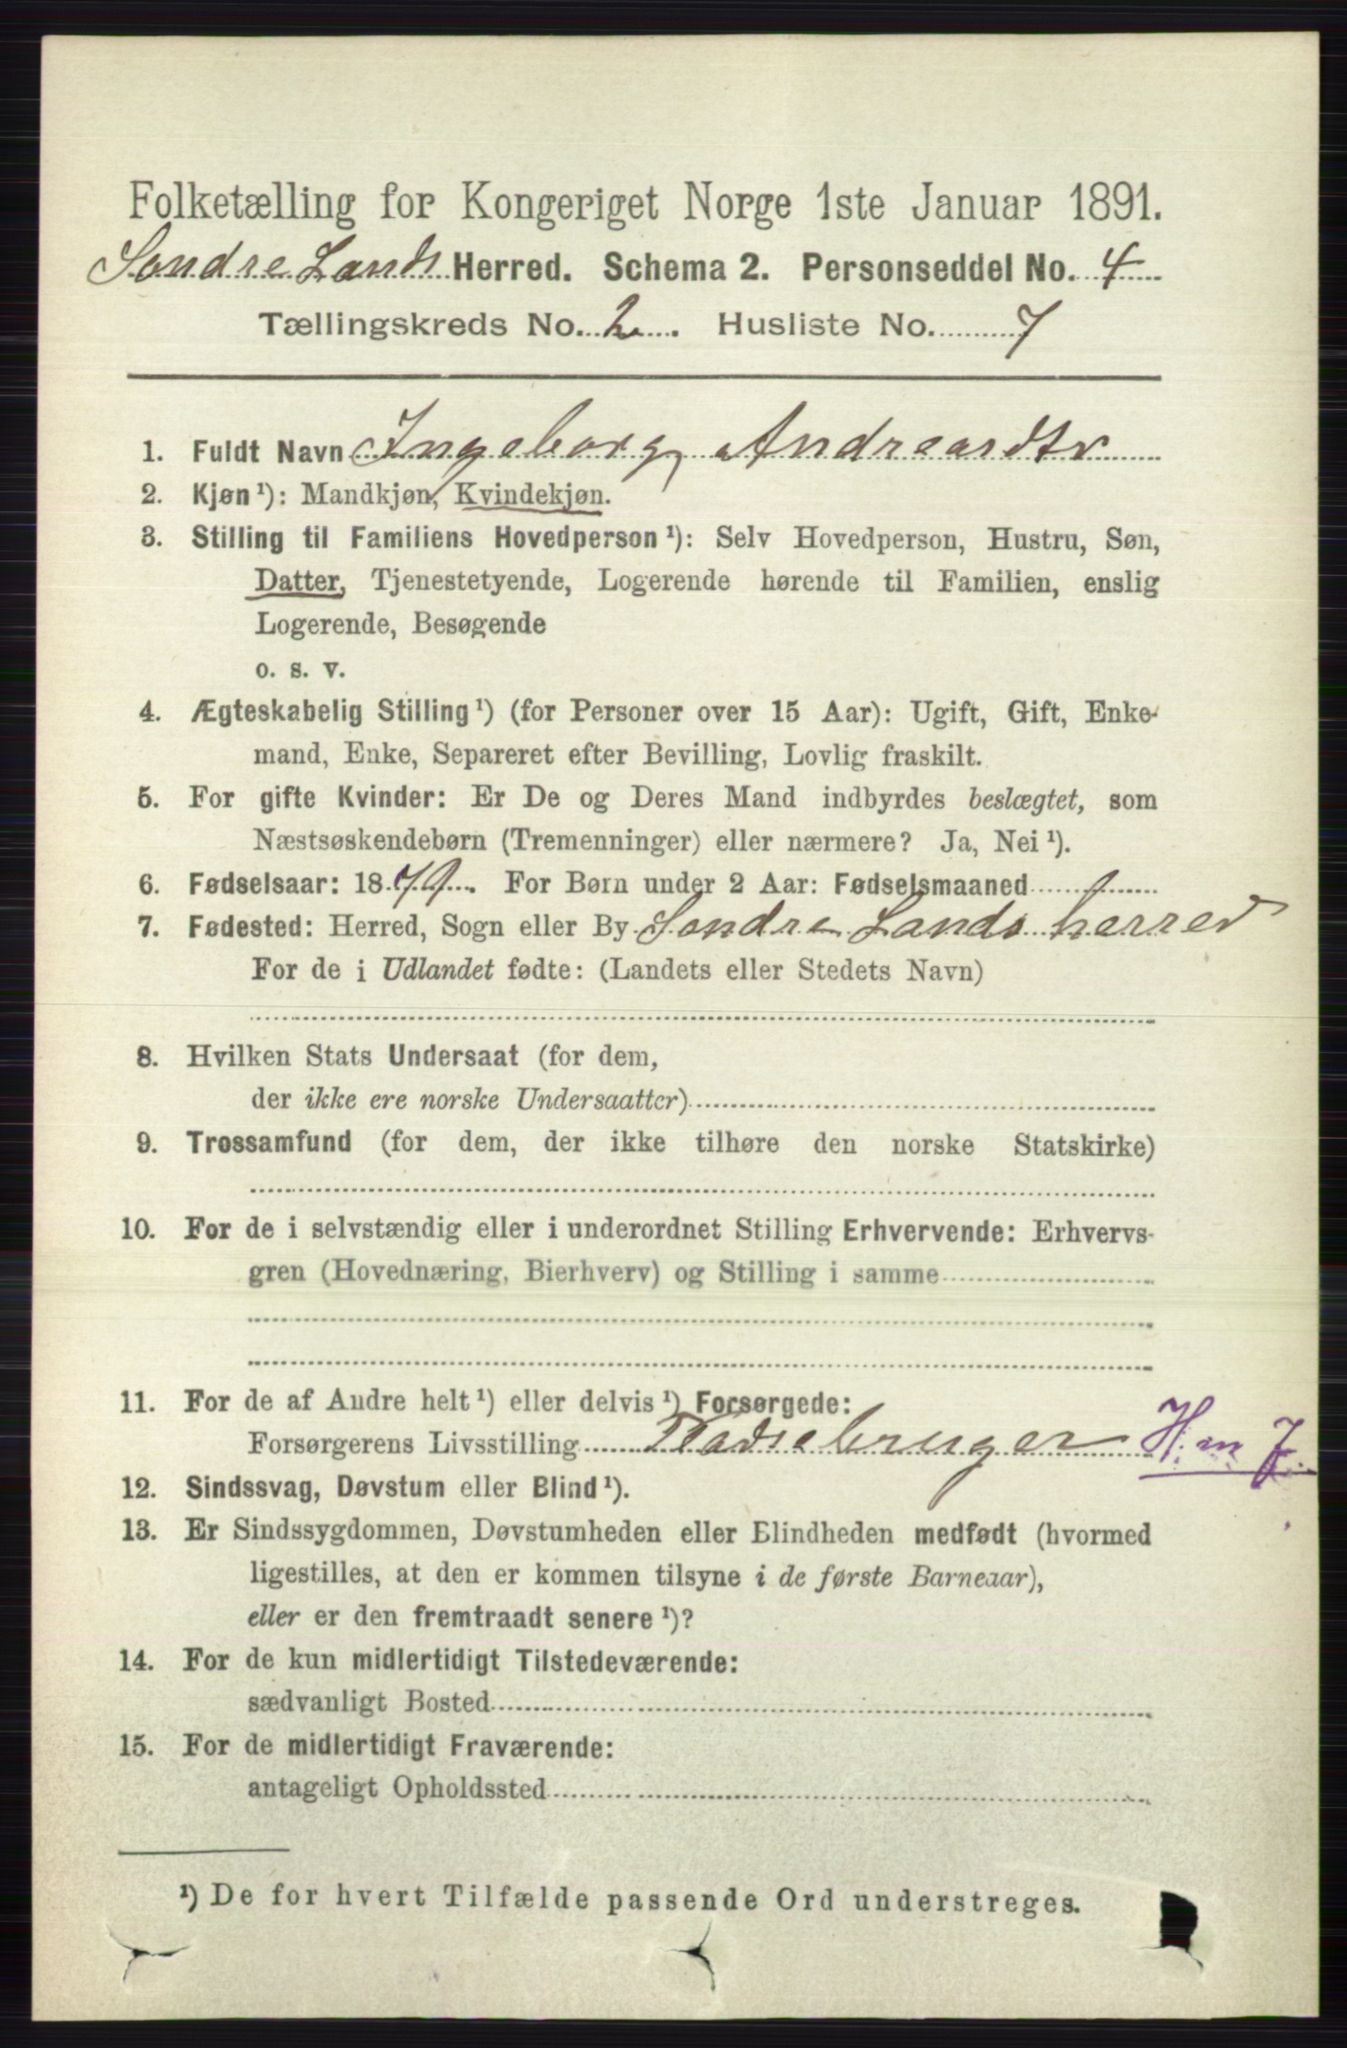 Folketælling for Kongeriget Norge 1ste Januar 1891.
Søndre Lands Herred. Schema 2. Personseddel No. 4
Tællingskreds No. 2. Husliste No. 7
1. Fuldt Navn Ingeborg Andreasdtr
2. Kjøn¹): Mandkjøn, Kvindekjøn.
3. Stilling til Familiens Hovedperson¹): Selv Hovedperson, Hustru, Søn,
Datter, Tjenestetyende, Logerende hørende til Familien, enslig
Logerende, Besøgende
o. s. v.
4. Ægteskabelig Stilling¹) (for Personer over 15 Aar): Ugift, Gift, Enke-
mand, Enke, Separeret efter Bevilling, Lovlig fraskilt.
5. For gifte Kvinder: Er De og Deres Mand indbyrdes beslægtet, som
Næstsøskendebørn (Tremenninger) eller nærmere? Ja, Nei¹).
6. Fødselsaar: 1879. For Børn under 2 Aar: Fødselsmaaned
7. Fødested: Herred, Sogn eller By Søndre Lands herred
For de i Udlandet fødte: (Landets eller Stedets Navn)
8. Hvilken Stats Undersaat (for dem,
der ikke ere norske Undersaatter)
9. Trossamfund (for dem, der ikke tilhøre den norske Statskirke)
10. For de i selvstændig eller i underordnet Stilling Erhvervende: Erhvervs-
gren (Hovednæring, Bierhverv) og Stilling i samme
11. For de af Andre helt¹) eller delvis¹) Forsørgede:
Forsørgerens Livsstilling Pladsebruger H. m J.
12. Sindssvag, Døvstum eller Blind¹).
13. Er Sindssygdommen, Døvstumheden eller Blindheden medfødt (hvormed
ligestilles, at den er kommen tilsyne i de første Barneaar),
eller er den fremtraadt senere¹)?
14. For de kun midlertidigt Tilstedeværende:
sædvanligt Bosted
15. For de midlertidigt Fraværende:
antageligt Opholdssted
¹) De for hvert Tilfælde passende Ord understreges.